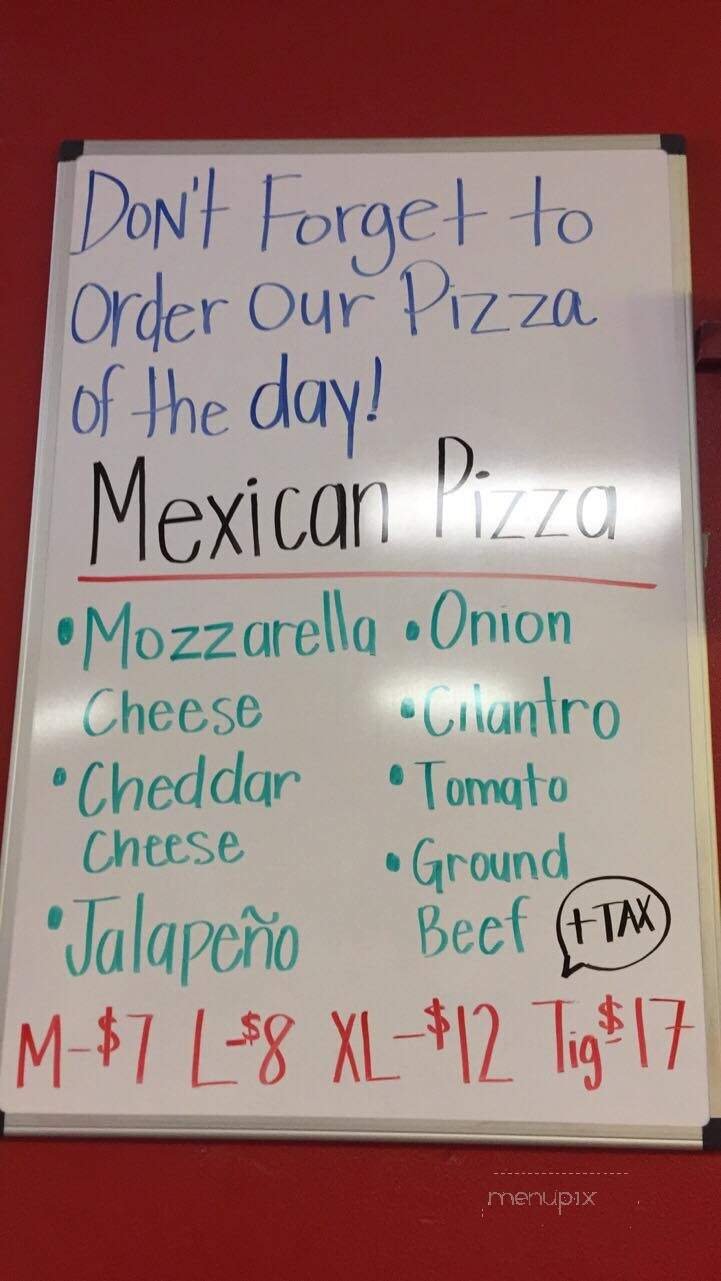 Don't Forget to
Order Our Pizza
of the day!
Mexican Pizza
• Mozzarella
Cheese
• Cheddar
Cheese
• Jalapeño
• Onion
• Cilantro
• Tomato
• Ground
Beef
+ TAX
M-$7 L-$8 XL-$12 Tig-$17
menupix